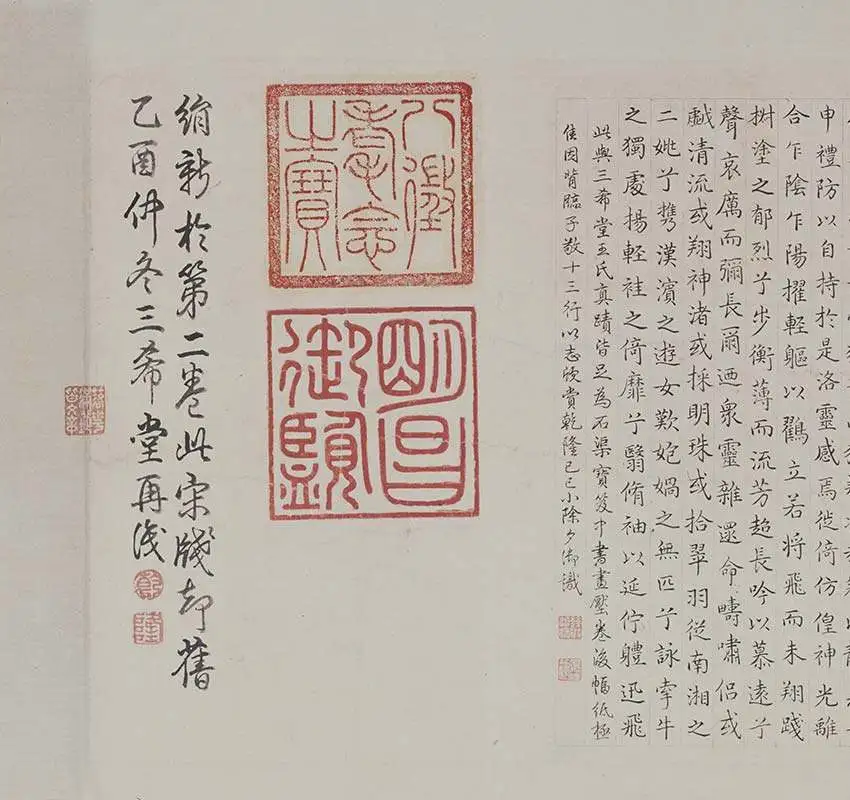 申禮防以自持於是洛靈感焉徙倚仿偟神光離
合乍陰乍陽擢輕軀以鸛立若將飛而未翔踐
椒塗之郁烈兮步衡薄而流芳超長吟以慕遠兮
聲哀厲而彌長爾迺衆靈雜遝命疇嘯侶或
戲清流或翔神渚或採明珠或拾翠羽從南湘之
二姚兮攜漢濱之遊女歎匏媧之無匹兮詠牽牛
之獨處揚輕袿之倚靡兮翳脩袖以延佇體迅飛
此與三希堂王氏真蹟皆足為石渠寶笈中書畫壓卷後幅紙極
佳因背臨子敬十三行以志欣賞乾隆己巳小除夕御識
八徵耄念之寶
明昌御覽
絹新於第二卷此宋牋却舊
乙酉仲冬三希堂再識
乾
隆